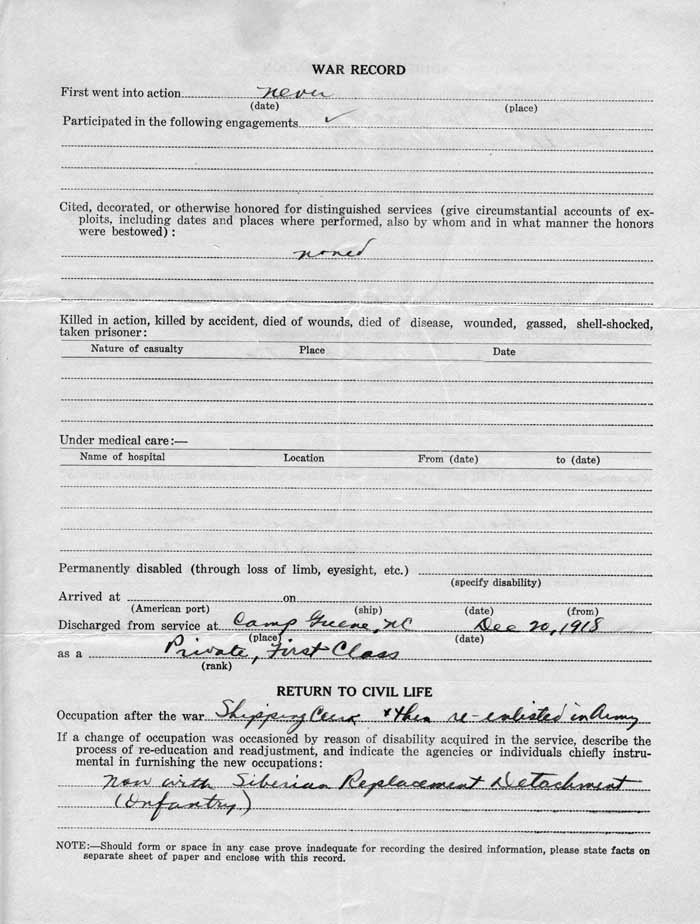 WAR RECORD
First went into action never
(date) (place)
Participated in the following engagements ✓
Cited, decorated, or otherwise honored for distinguished services (give circumstantial accounts of ex-
ploits, including dates and places where performed, also by whom and in what manner the honors
were bestowed) :
Killed in action, killed by accident, died of wounds, died of disease, wounded, gassed, shell-shocked,
taken prisoner:
Nature of casualty Place Date
Under medical care:—
Name of hospital Location From (date) to (date)
Permanently disabled (through loss of limb, eyesight, etc.)
(specify disability)
Arrived at on
(American port) (ship) (date) (from)
Discharged from service at Camp Greene, NC Dec 20, 1918
(place) (date)
as a Private, First Class
(rank)
RETURN TO CIVIL LIFE
Occupation after the war Shipping Clerk & then re-enlisted in Army
If a change of occupation was occasioned by reason of disability acquired in the service, describe the
process of re-education and readjustment, and indicate the agencies or individuals chiefly instru-
mental in furnishing the new occupations:
now with Siberian Replacement Detachment
(Infantry)
NOTE:—Should form or space in any case prove inadequate for recording the desired information, please state facts on
separate sheet of paper and enclose with this record.